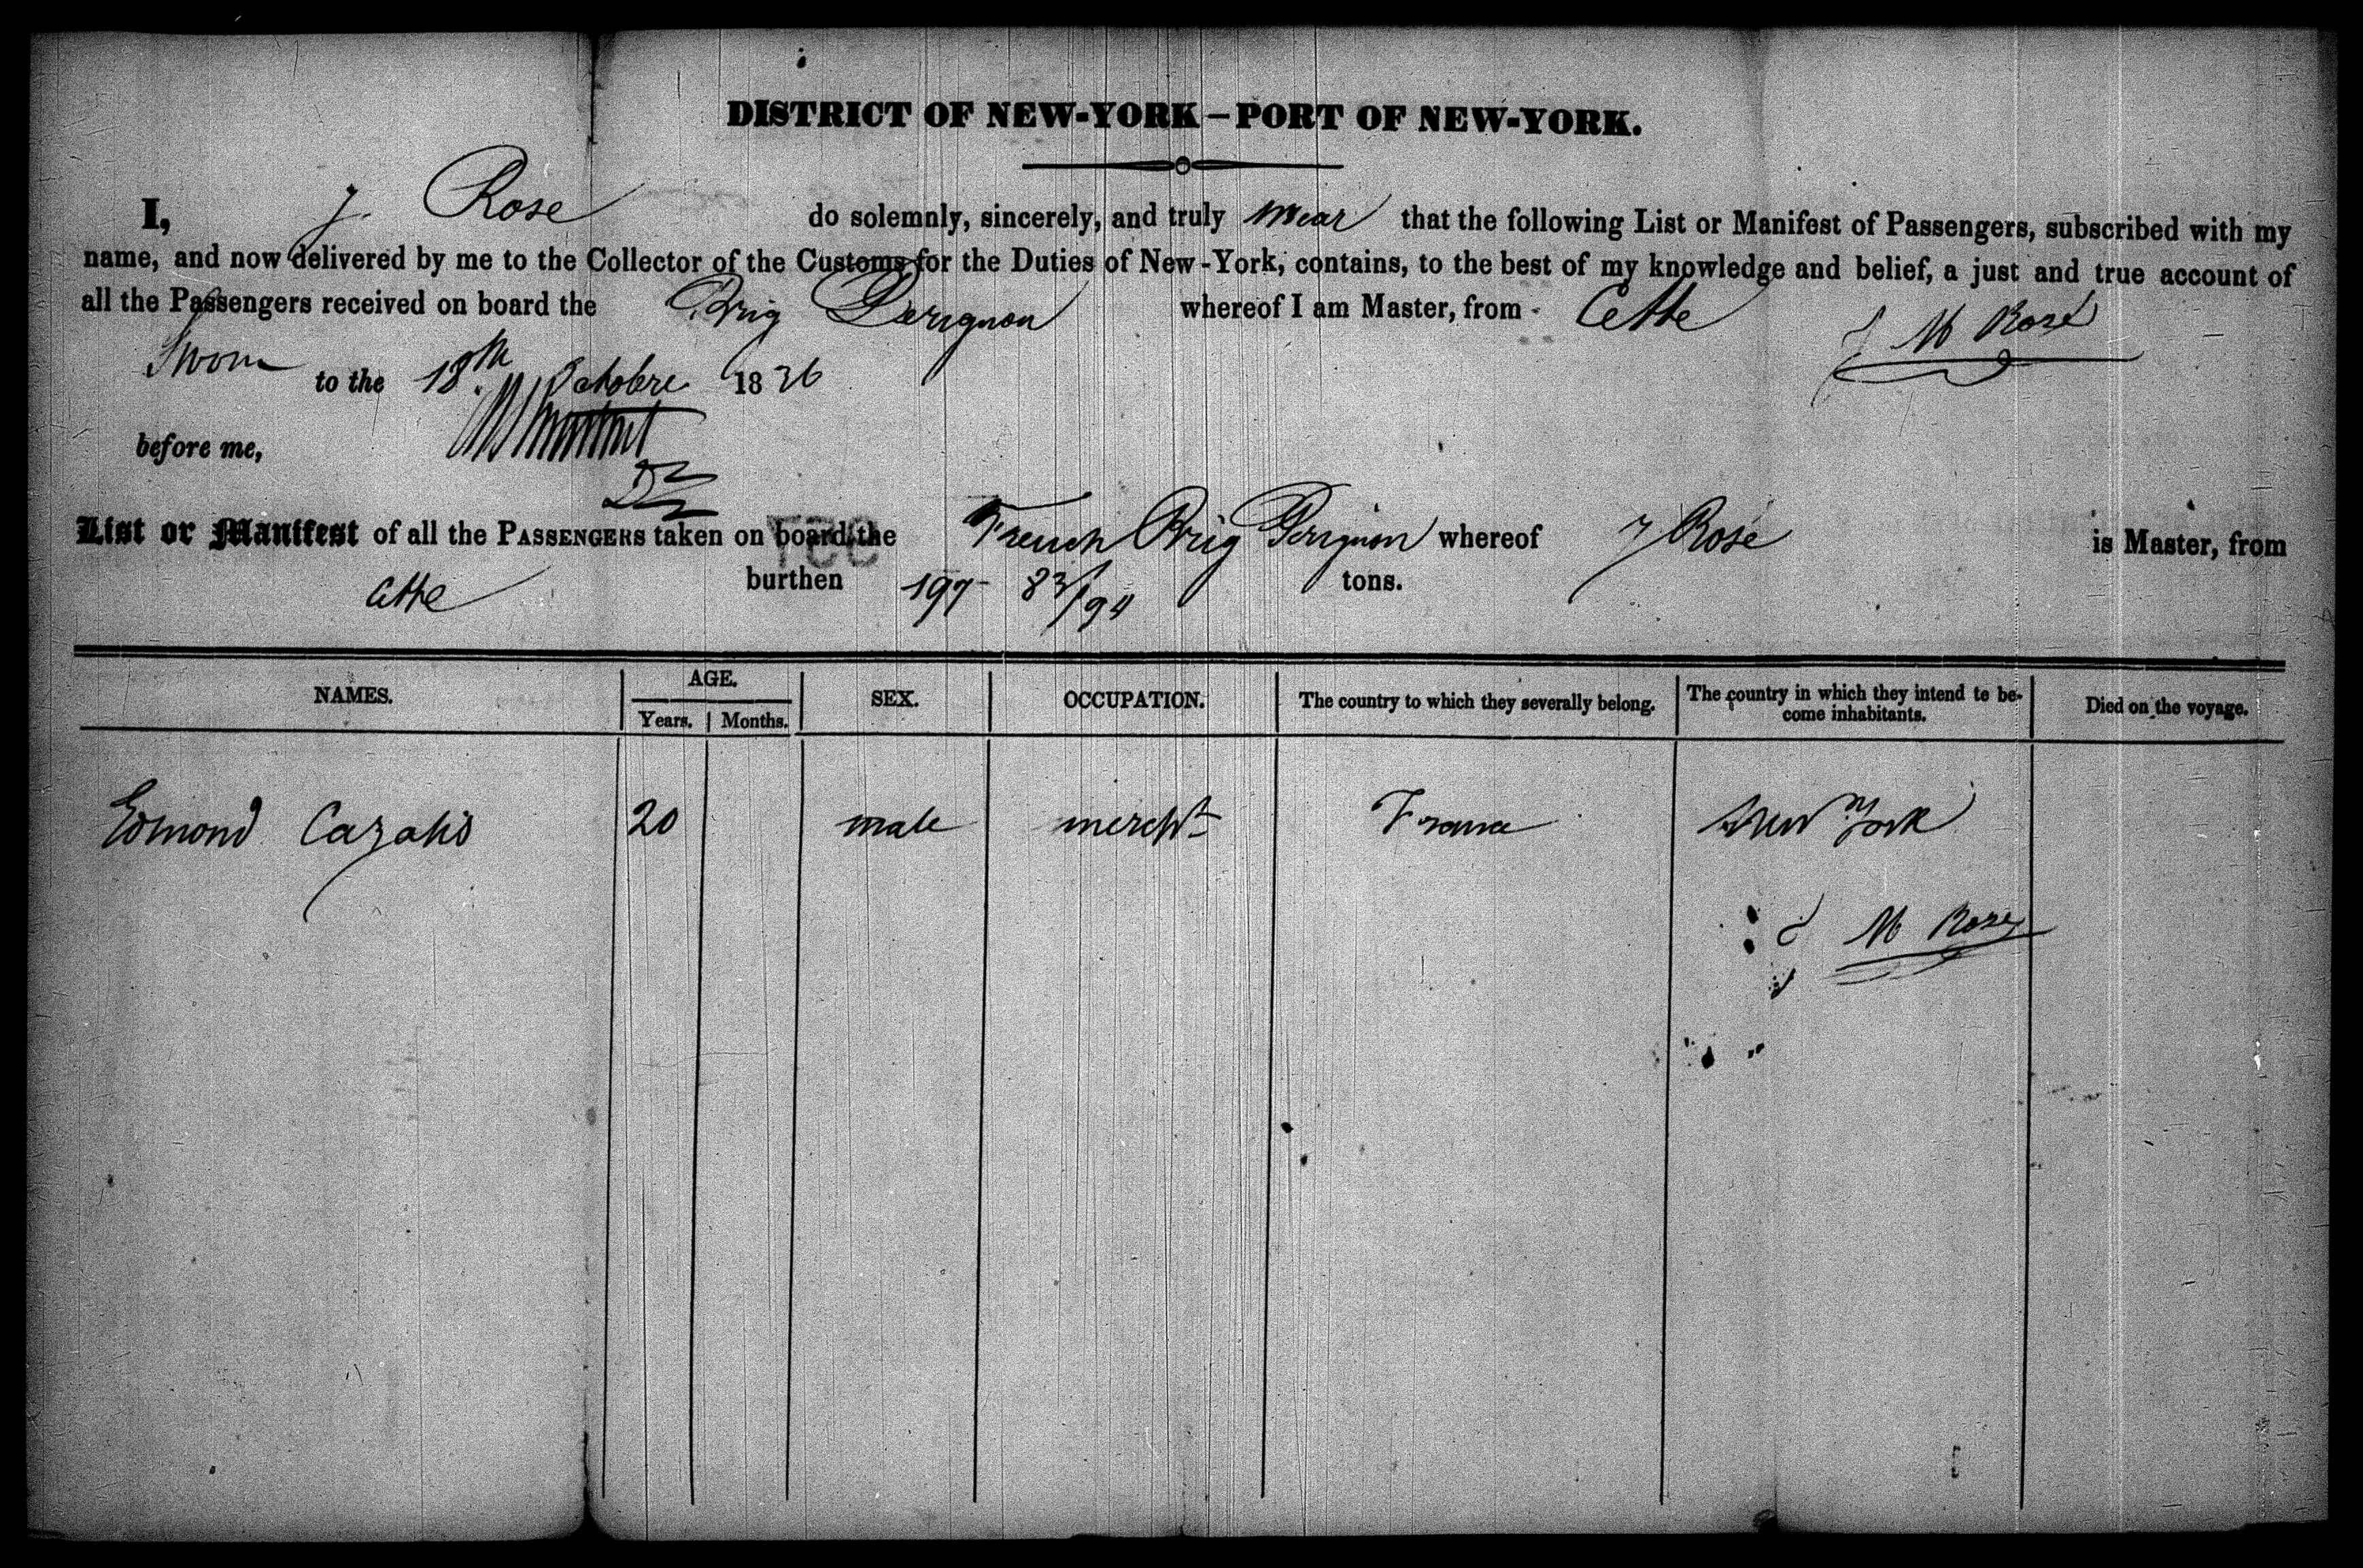 DISTRICT OF NEW-YORK – PORT OF NEW-YORK.
I, J. Rose do solemnly, sincerely, and truly swear that the following List or Manifest of Passengers, subscribed with my
name, and now delivered by me to the Collector of the Customs for the Duties of New-York, contains, to the best of my knowledge and belief, a just and true account of
all the Passengers received on board the Brig Perignon whereof I am Master, from Cette
J M Rose
Sworn to the 18th Octobre 1836
before me,
List or Manifest of all the PASSENGERS taken on board the French Brig Perignon whereof J Rose is Master, from
Cette burthen 197 83/94 tons.
NAMES. AGE. SEX. OCCUPATION. The country to which they severally belong. The country in which they intend to be-
come inhabitants. Died on the voyage.
Years. Months.
Edmond 20 male mercht France New York
J M Rose